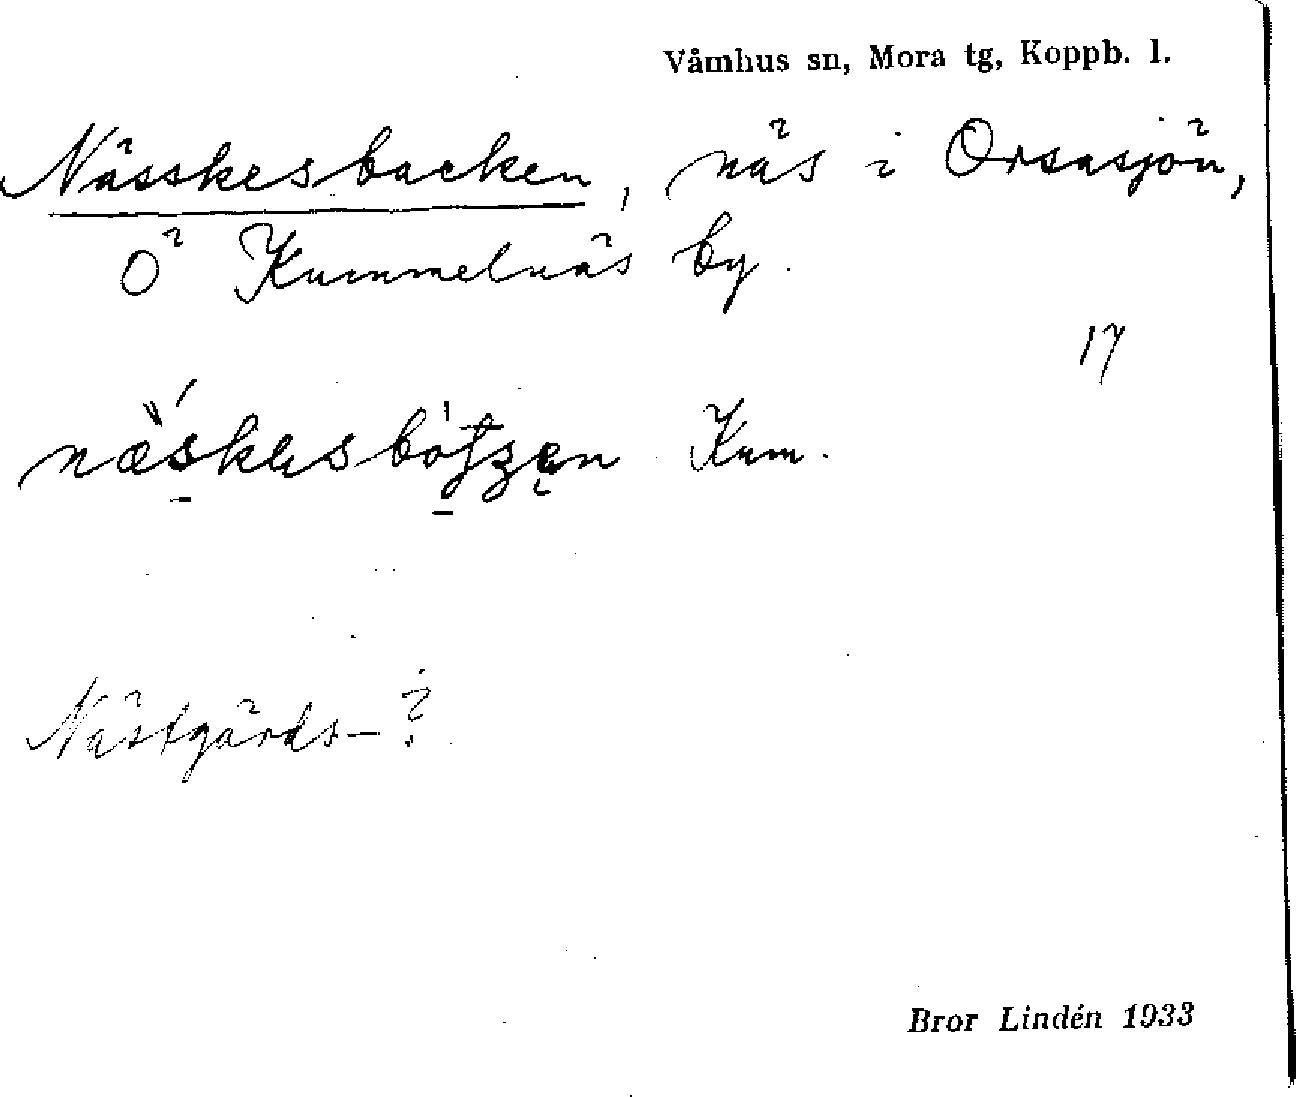 Våmhus sn, Mora tg, Koppb. l.
Nässkesbacken, näs i Orsasjön,
Ö Kummelnäs by.
17
Kum.
Nästgårds-?
Bror Lindén 1933